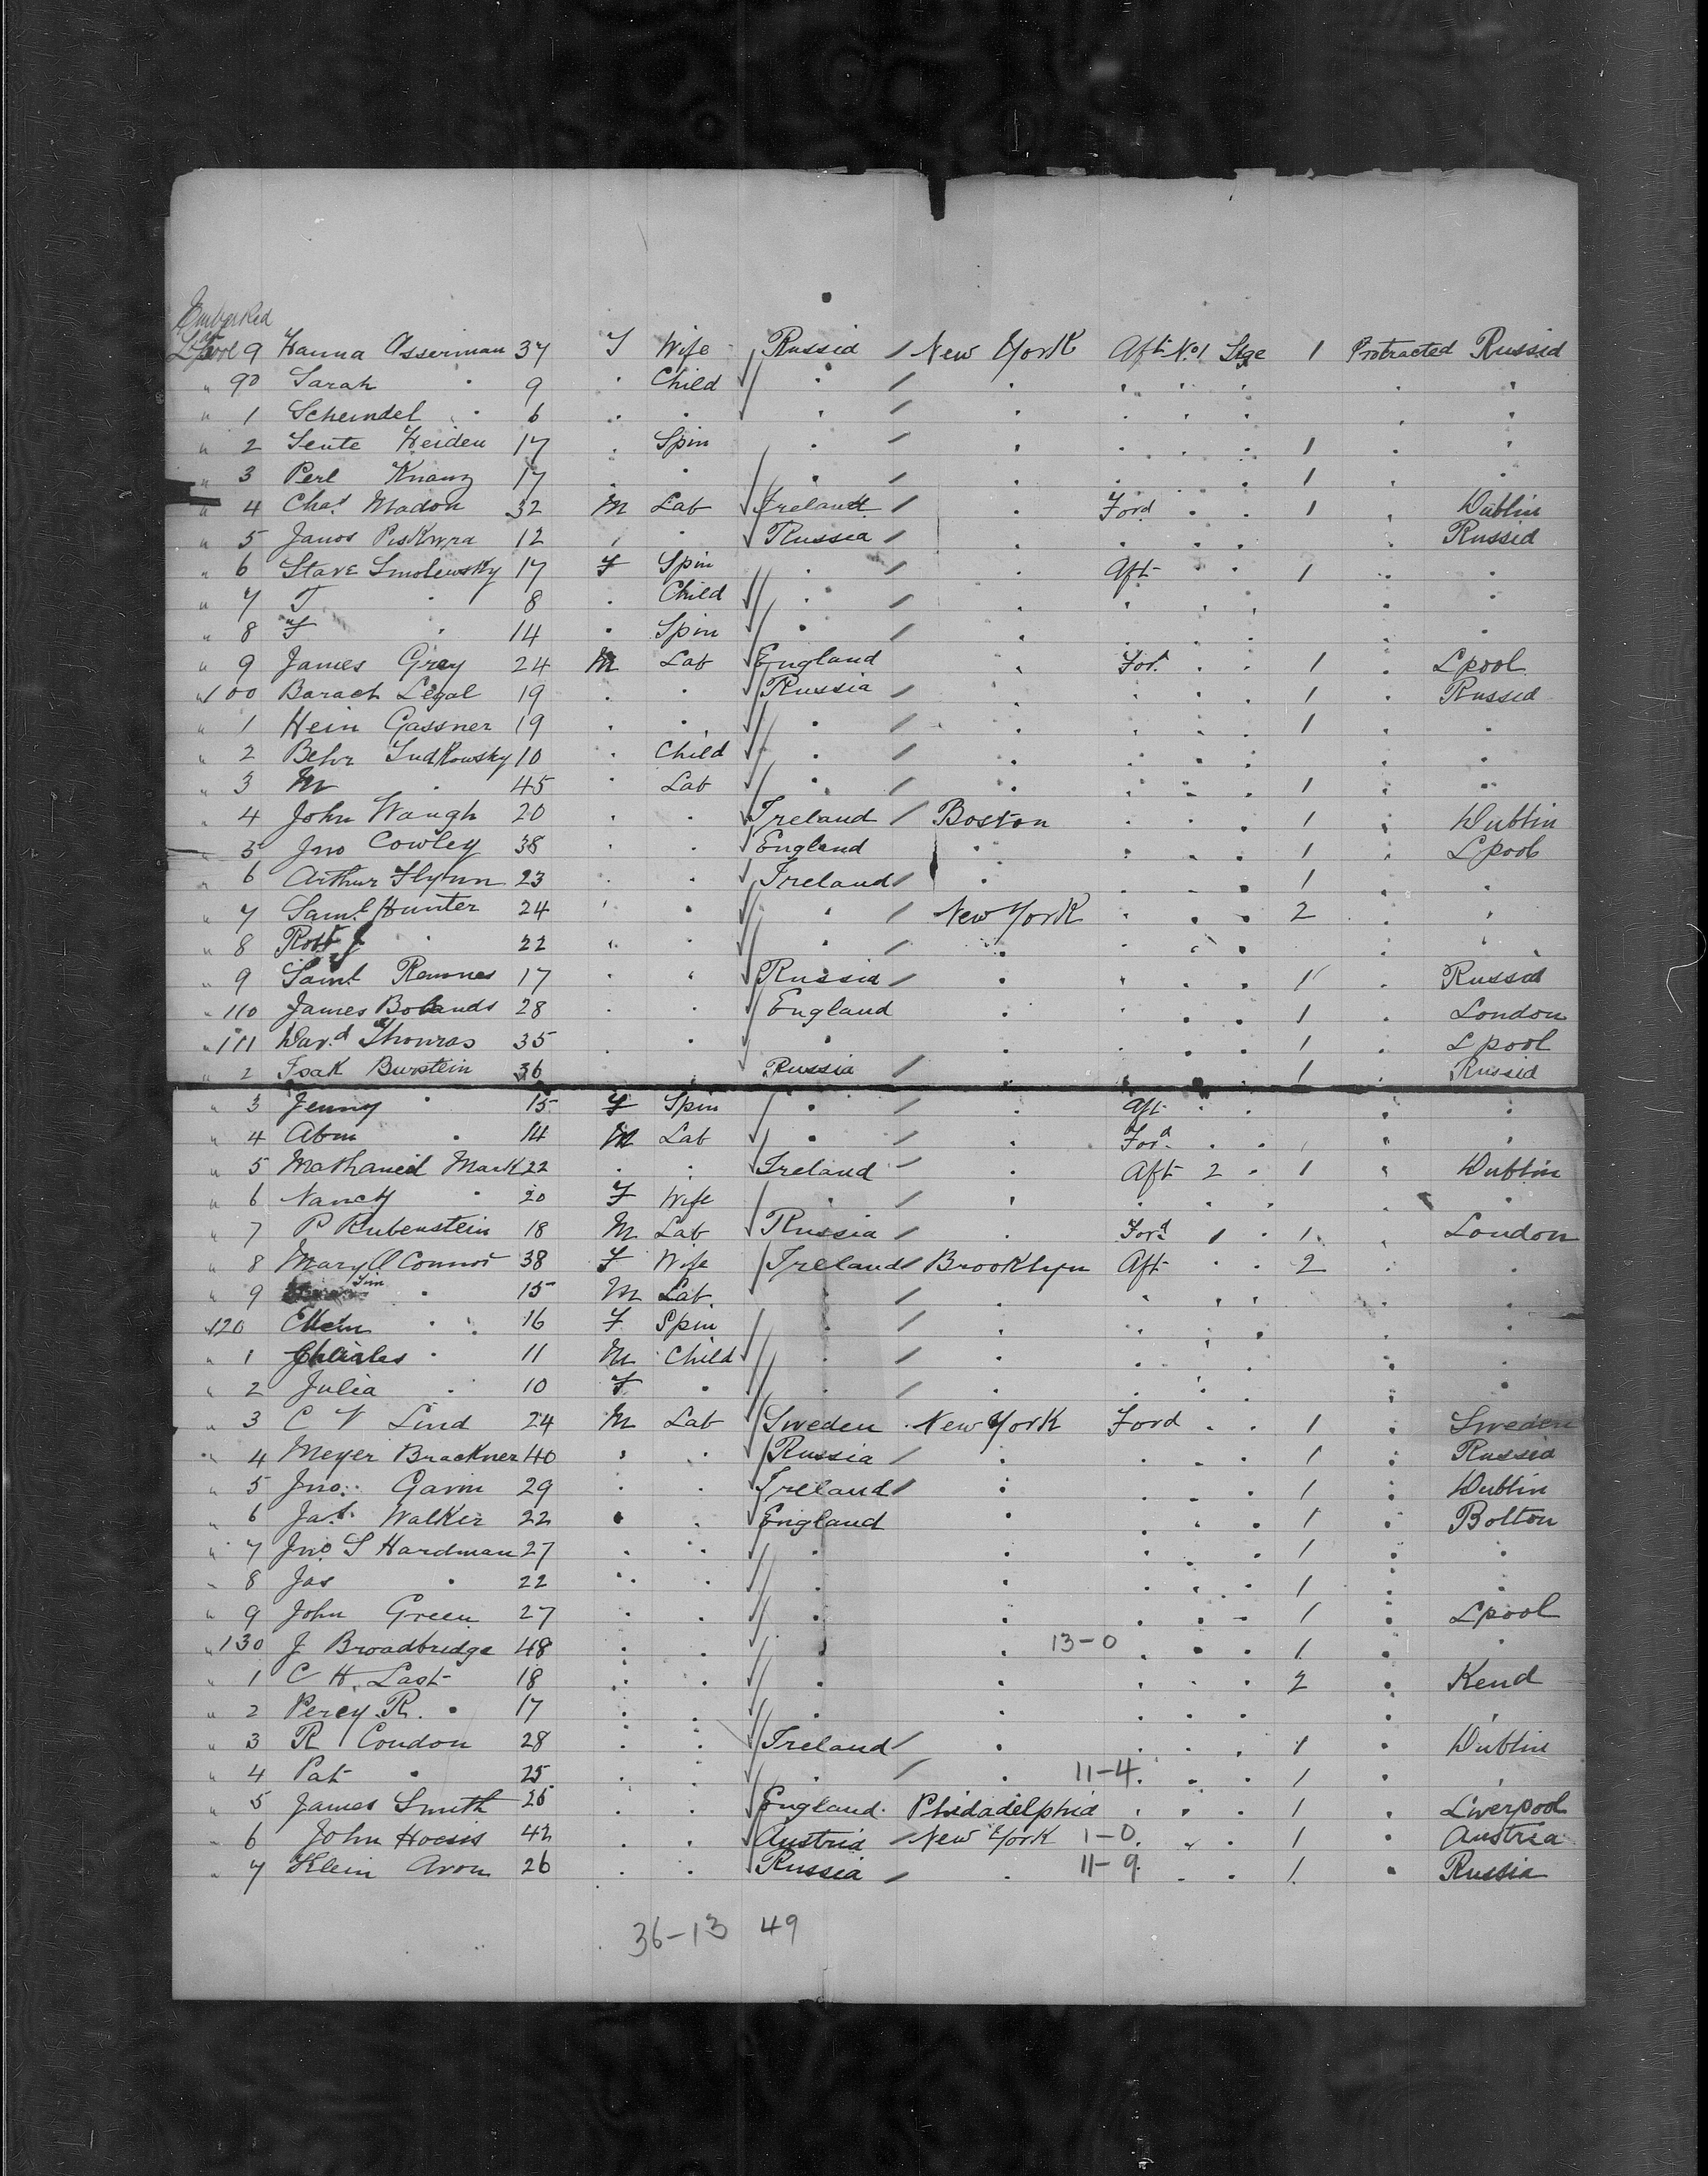 Embarked
L'pool 9 Hanna Osserman 37 F Wife Russia New York Aft No 1 Stge 1 Protracted Russia
" 90 Sarah " 9 " Child " " " " " " "
" 1 Scheindel " 6 " " " " " " " " "
" 2 Sente Heiden 17 " Spin " " " " " 1 " "
" 3 Perl Knanz 17 " " " " " " " 1 " "
" 4 Chas Madon 32 M Lab Ireland " Ford " " 1 " Dublin
" 5 Janos Piskwra 12 " " Russia " " " " " Russia
" 6 Stave Smolewsky 17 F Spin " " Aft " " 1 " "
" 7 T " 8 " Child " " " " " " "
" 8 F " 14 " Spin " " " " " " "
" 9 James Grey 24 M Lab England " Ford " " 1 " Lpool
" 100 Barach Legal 19 " " Russia " " " " 1 " Russia
" 1 Hein Gassner 19 " " " " " " " 1 " "
" 2 Behr Judkowsky 10 " Child " " " " " " "
" 3 M " 45 " Lab " " " " " 1 " "
" 4 John Waugh 20 " " Ireland Boston " " " 1 " Dublin
" 5 Jno Cowley 38 " " England " " " " 1 " Lpool
" 6 Arthur Flynn 23 " " Ireland " " " " 1 " "
" 7 Saml Hunter 24 " " " New York " " " 2 " "
" 8 Robt " 22 " " " " " " " " "
" 9 Saml Ramnes 17 " " Russia " " " " 1 " Russia
" 110 James Bolands 28 " " England " " " " 1 " London
" 111 Davd Thomas 35 " " " " " " " 1 " Lpool
" 2 Isak Burstein 36 " " Russia " " " " 1 " Russia
" 3 Jenny " 15 F Spin " " Aft " " " "
" 4 Abm " 14 M Lab " " Ford " " " "
" 5 Nathaneil Mark 22 " " Ireland " Aft 2 " 1 " Dublin
" 6 Nancy " 20 F Wife " " " " " " "
" 7 P Rubenstein 18 M Lab Russia " Ford 1 " 1 " London
" 8 Mary O'Connor 38 F Wife Ireland Brooklyn Aft " " 2 " "
" 9 Tim " 15 M Lab " " " " " " "
" 120 Ellen " 16 F Spin " " " " " " "
" 1 Charles " 11 M Child " " " " " " "
" 2 Julia " 10 F " " " " " " " "
" 3 C V Lind 24 M Lab Sweden New York Ford " " 1 " Sweden
" 4 Meyer Brackner 40 " " Russia " " " " 1 " Russia
" 5 Jno. Gavin 29 " " Ireland " " " " 1 " Dublin
" 6 Jas. Walker 22 " " England " " " " 1 " Bolton
" 7 Jno S Hardman 27 " " " " " " " 1 " "
" 8 Jas " 22 " " " " " " " 1 " "
" 9 John Green 27 " " " " " " " 1 " Lpool
" 130 J Broadbridge 48 " " " 13-0 " " 1 " "
" 1 C H. Last 18 " " " " " " " 2 " Kend
" 2 Percy R. " 17 " " " " " " " " "
" 3 R Condon 28 " " Ireland " " " " 1 " Dublin
" 4 Pat " 25 " " " " 11-4 " " 1 " "
" 5 James Smith 26 " " England Phidadelphia " " " 1 " Liverpool
" 6 John Hocsis 42 " " Austria New York 1-0 " " 1 " Austria
" 7 Klein Aron 26 " " Russia " 11-9 " " 1 " Russia
36-13 49